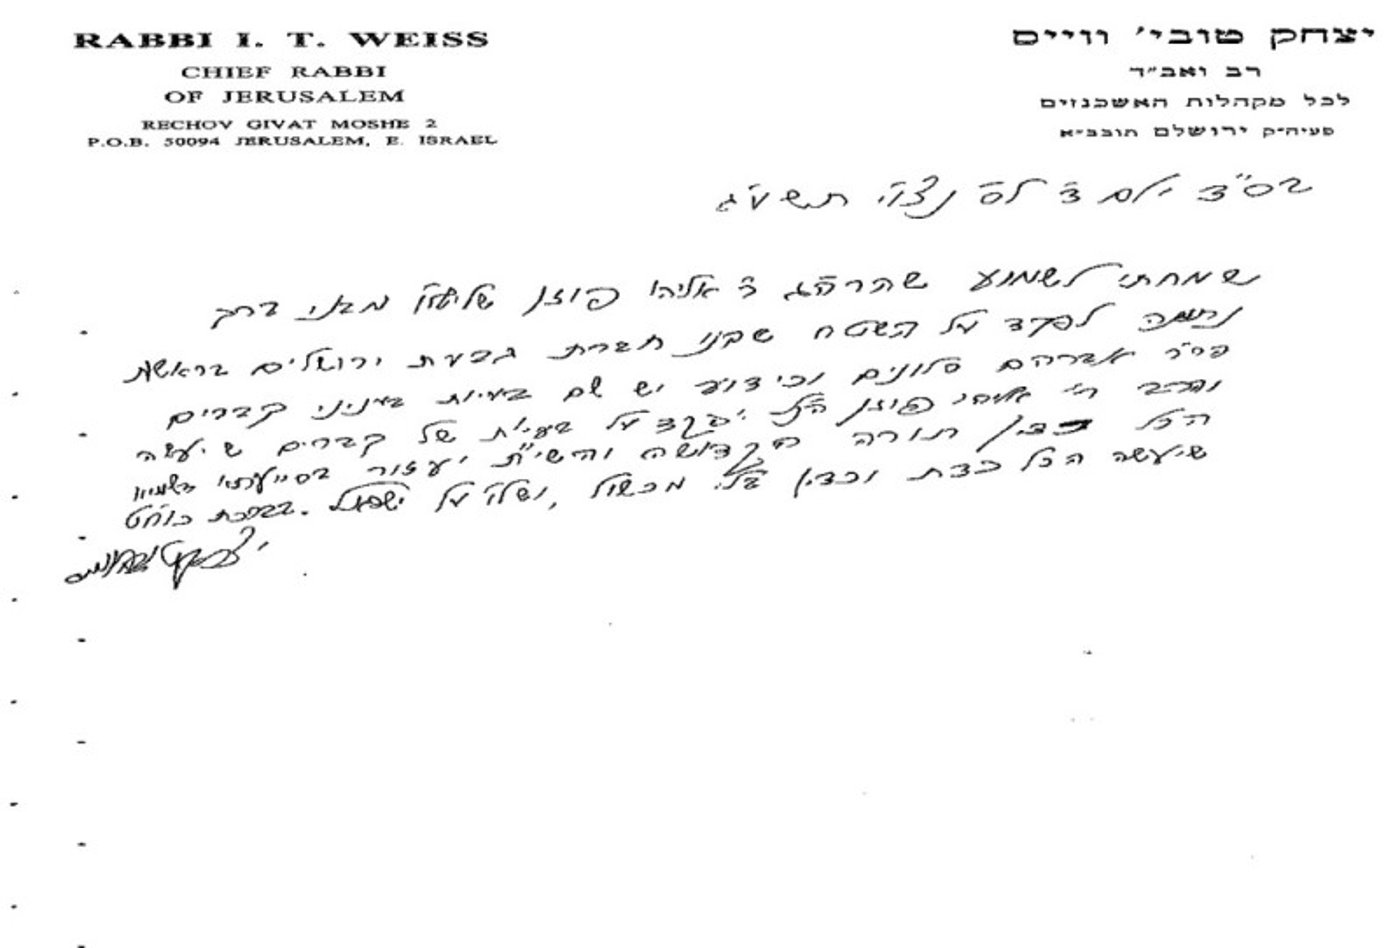 RABBI I. T. WEISS
CHIEF RABBI
OF JERUSALEM
RECHOV GIVAT MOSHE 2
P.O.B. 50094 JERUSALEM, E. ISRAEL
יצחק טובי' ווייס
רב ואב"ד
לכל מקהלות האשכנזים
פעיה"ק ירושלם תובב"א
בס"ד יום ד' לס' נצו"י תשע"ג
שמחתי לשמוע שהרה"ג ר' אליהו פוזן שליט"א מבני ברק
נתמנה לפקד על השטח שקנו חברת גבעת ירושלים בראשות
ר' אברהם סלונים וכידוע יש שם בעיות בעניני קברים
והרב ר' אליהו פוזן הנ"ל יפקד על בעיות של קברים שיעשה
הכל כדין תורה הקדושה והשי"ת יעזור בסייעתו
שיעשה הכל כדת וכדין בלי מכשול, ושלו' על ישראל. בברכת כוח"ט
יצחק טובי' ווייס